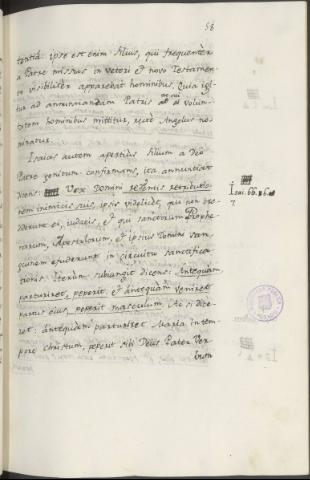 58
tentiã: ipse est enim filius, qui frequentèr
a Patre missus in vetori et novo Testamen
to visibilitèr apparebat hominibus. Quia igi
tur ad annuntiandam Patris volun
tatem hominibus mittitur, rectè Angelus no
minatur.
Isaias autem apertiùs filium a Deo
Patre genitum confirmans, ita annuntiat
dicens: Vox Domini reddentis retributio
nem inimicis suis, ipsis videlicet, qui non cre
diderunt ei, iudaeis, et qui sanctorum Prophe
tarum, Apostolorum, et ipsius Domini san
guinem efuderunt in circuitu sanctifica
tionis. Iterùm subiungit dicens: Antequam
parturiret, peperit, et antequàm veniret
partus eius, peperit masculum. Ac si dice
ret: antequàm parturiret Maria in tem
pore christum, peperit sibi Deus Pater Ver
bum
Isai. 66. v. 6.
7